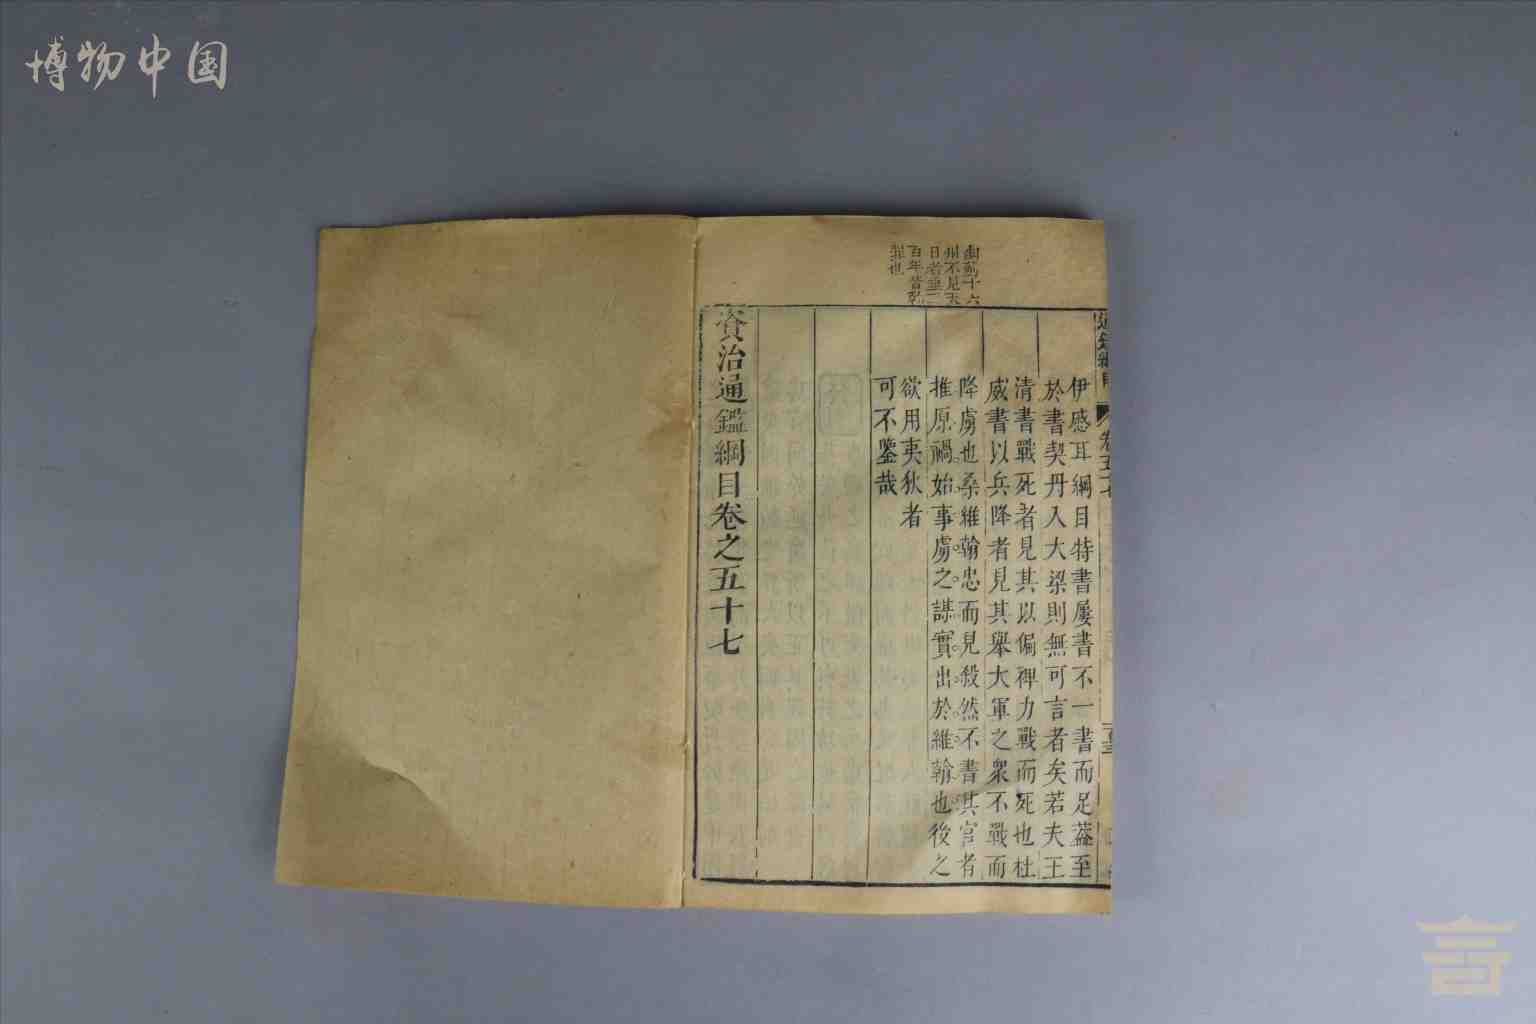 博物中国
幽薊十六
州不見天
日者垂三
百年皆
罪也
通鑑綱目 卷五十七
伊感耳綱目特書屢書不一書而足蓋至
於書契丹入大梁則無可言者矣若夫王
清書戰死者見其以偏裨力戰而死也杜
威書以兵降者見其舉大軍之衆不戰而
降虜也桑維翰忠而見殺然不書其官者
推原禍始事虜之謀實出於維翰也後之
欲用夷狄者
可不鑒哉
資治通鑑綱目卷之五十七